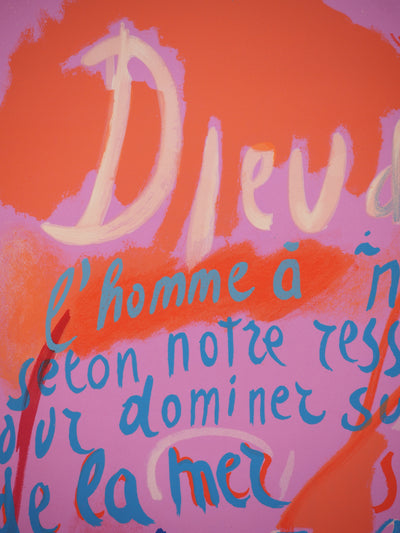 Dieu d
l'homme à n
selon notre ress
our dominer su
de la mer
s